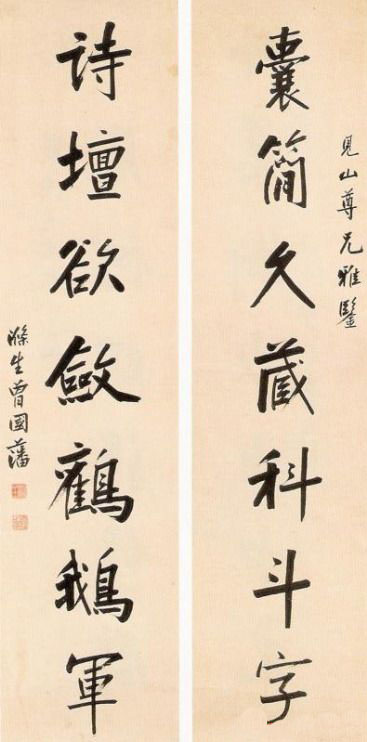 見山尊兄雅鑒
囊簡久藏科斗字
詩壇欲斂鸛鵝軍
滌生曾國藩